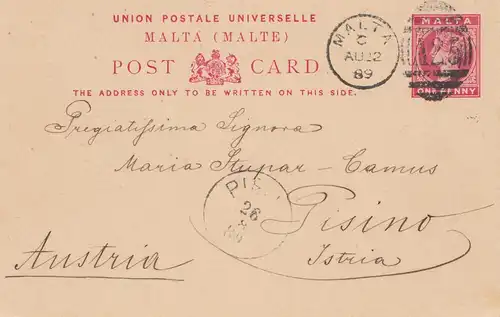 UNION POSTALE UNIVERSELLE
MALTA (MALTE)
POST CARD
THE ADDRESS ONLY TO BE WRITTEN ON THIS SIDE.
MALTA
C
AU 22
89
MALTA
ONE PENNY
Pregiatissima Signora
Maria Stupar-Camus
PIS
26
8
Pisino
Istria
Austria